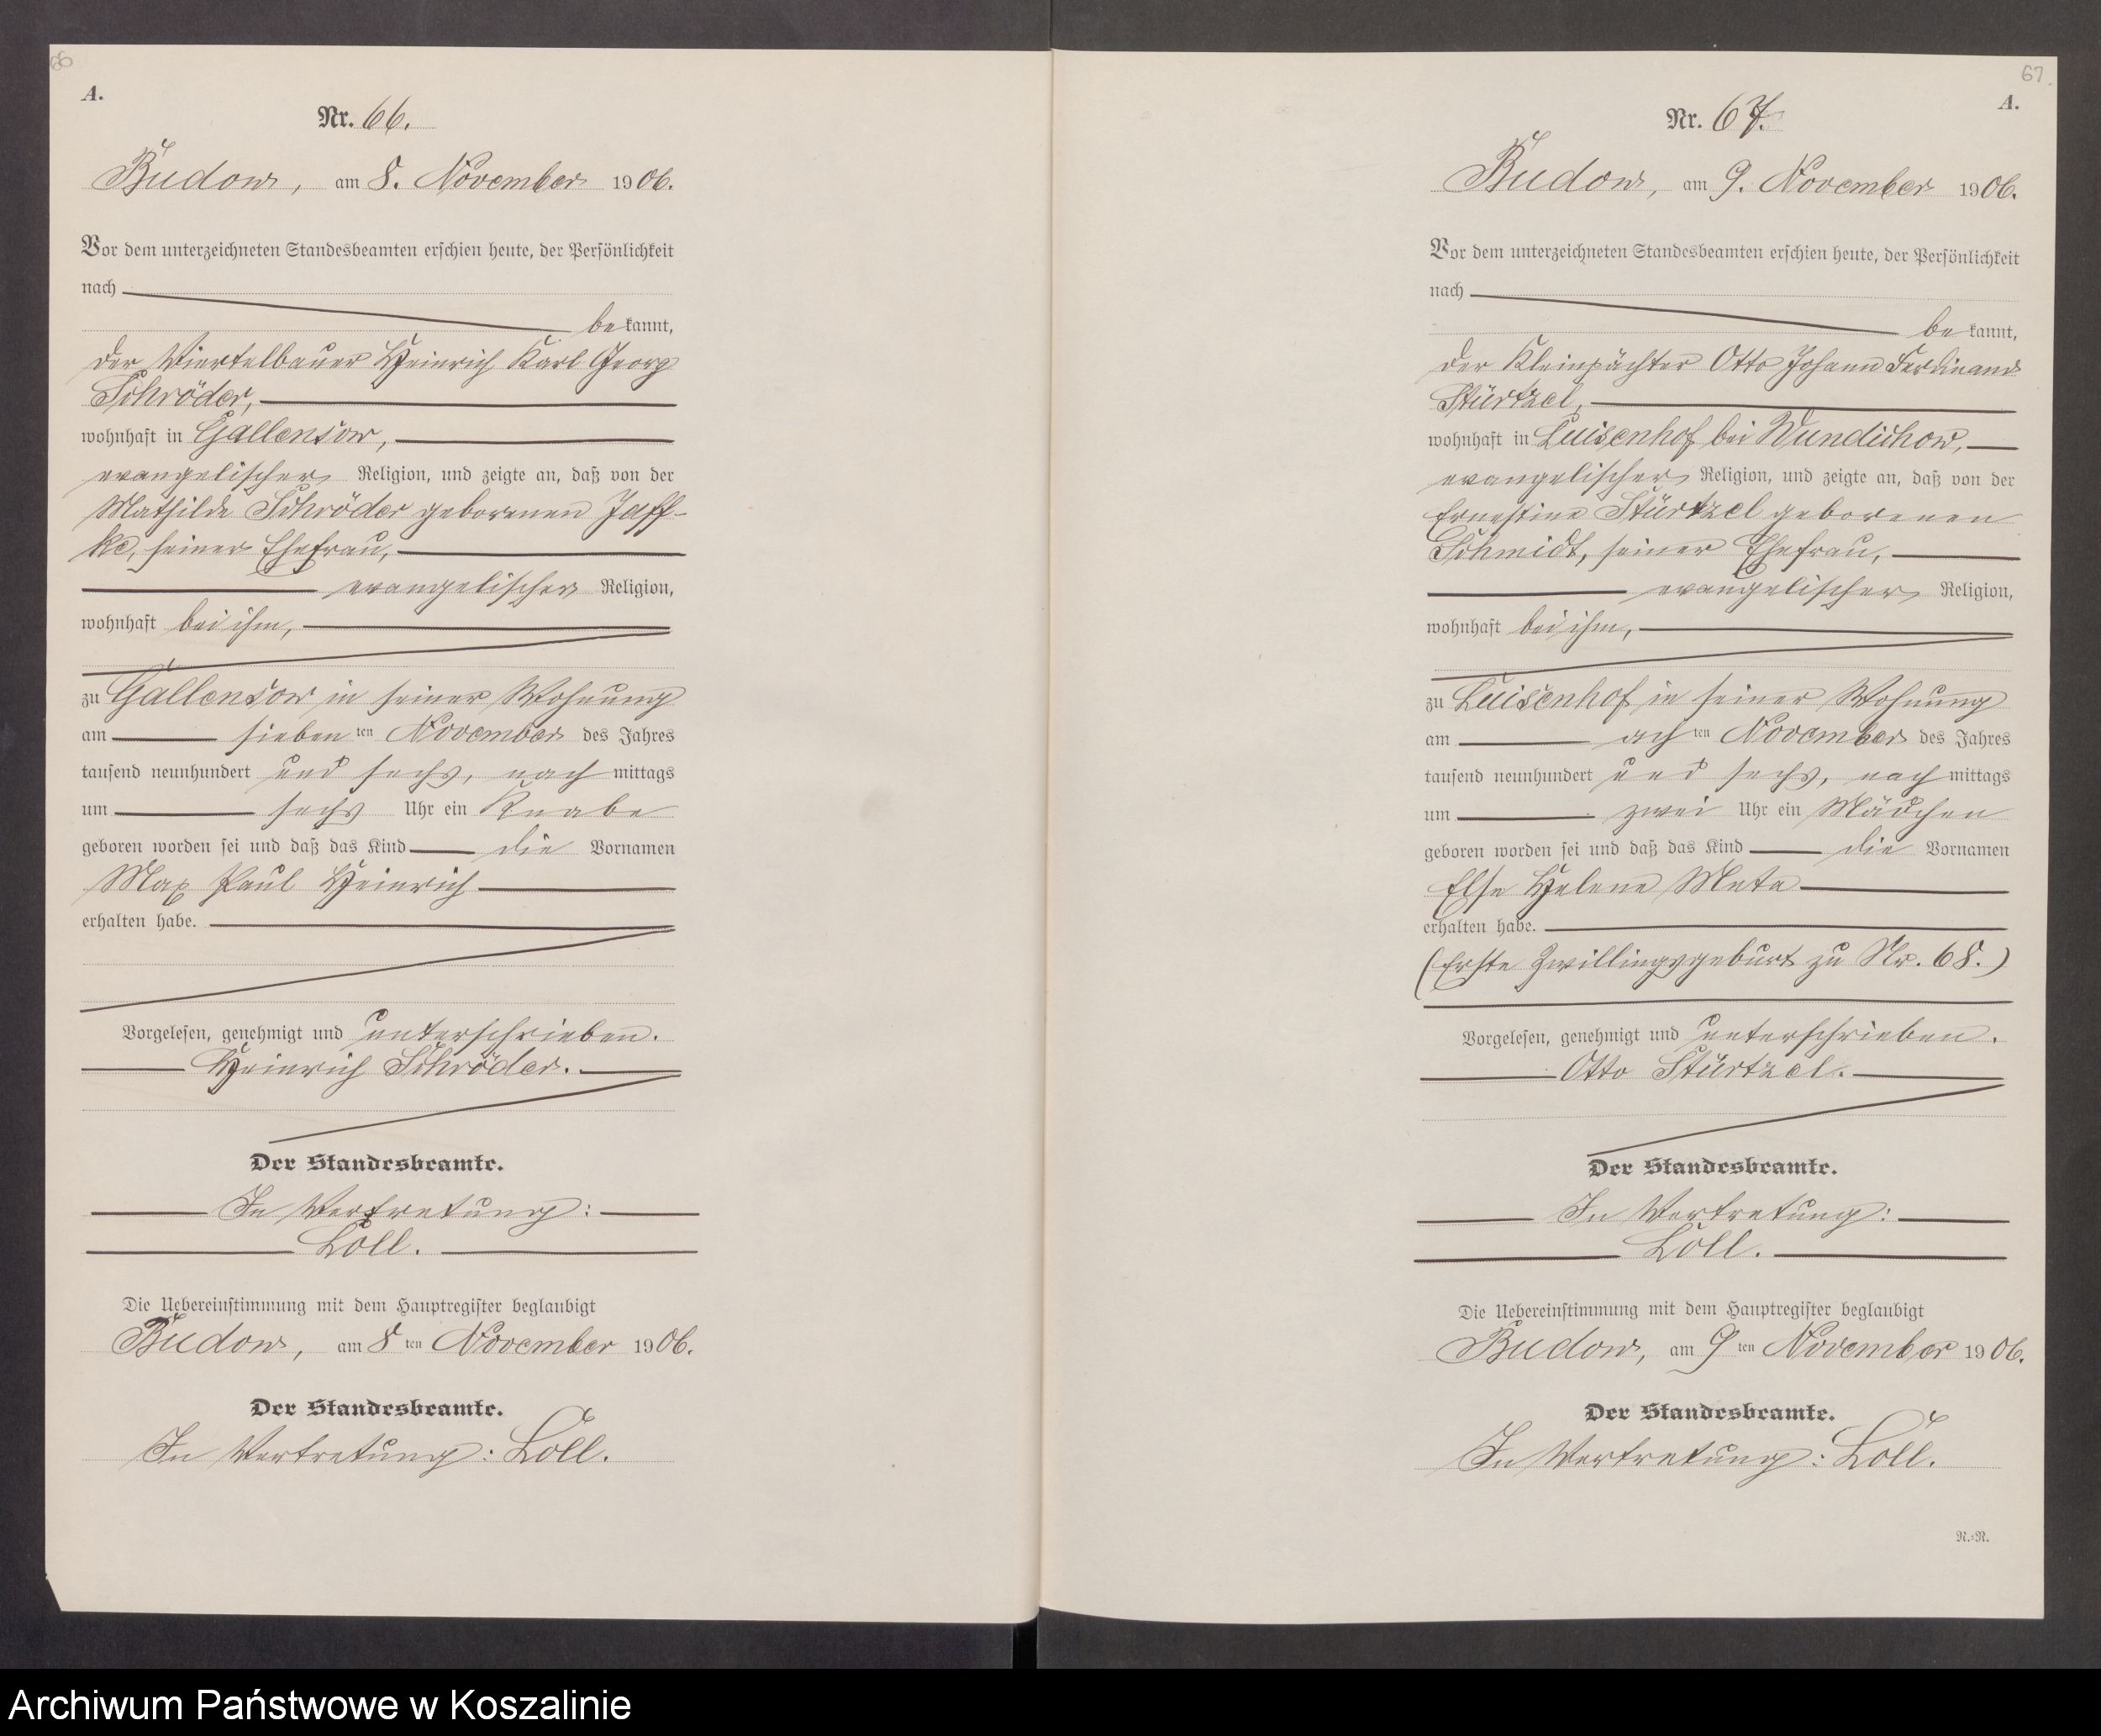 66
A.
Nr. 66.
Budow, am 8. November 1906.
Vor dem unterzeichneten Standesbeamten erschien heute, der Persönlichkeit
nach
bekannt,
der Viertelbauer Heinrich Karl Georg
Schröder,
wohnhaft in Gallensow,
evangelischer Religion, und zeigte an, daß von der
Mathilde Schröder geborenen Jaff-
ke, seiner Ehefrau,
evangelischer Religion,
wohnhaft bei ihm,
zu Gallensow in seiner Wohnung
am sieben ten November des Jahres
tausend neunhundert und sechs, nach mittags
um sechs Uhr ein Knabe
geboren worden sei und daß das Kind die Vornamen
Max Paul Heinrich
erhalten habe.
Vorgelesen, genehmigt und unterschrieben.
Heinrich Schröder.
Der Standesbeamte.
In Vertretung:
Loll.
Die Uebereinstimmung mit dem Hauptregister beglaubigt
Budow, am 8 ten November 1906.
Der Standesbeamte.
In Vertretung: Loll.
67.
A.
Nr. 67.
Budow, am 9. November 1906.
Vor dem unterzeichneten Standesbeamten erschien heute, der Persönlichkeit
nach
bekannt,
der Kleinpächter Otto Johann Ferdinand
Stürtzel,
wohnhaft in Luisenhof bei Wundichow,
evangelischer Religion, und zeigte an, daß von der
Ernestine Stürtzel geborenen
Schmidt, seiner Ehefrau,
evangelischer Religion,
wohnhaft bei ihm,
zu Luisenhof in seiner Wohnung
am ach ten November des Jahres
tausend neunhundert und sechs, nach mittags
um zwei Uhr ein Mädchen
geboren worden sei und daß das Kind die Vornamen
Else Helene Meta
erhalten habe.
(Erste Zwillingsgeburt zu Nr. 68.)
Vorgelesen, genehmigt und unterschrieben.
Otto Stürtzel.
Der Standesbeamte.
In Vertretung:
Loll.
Die Uebereinstimmung mit dem Hauptregister beglaubigt
Budow, am 9 ten November 1906.
Der Standesbeamte.
In Vertretung: Loll.
N.-N.
Archiwum Państwowe w Koszalinie